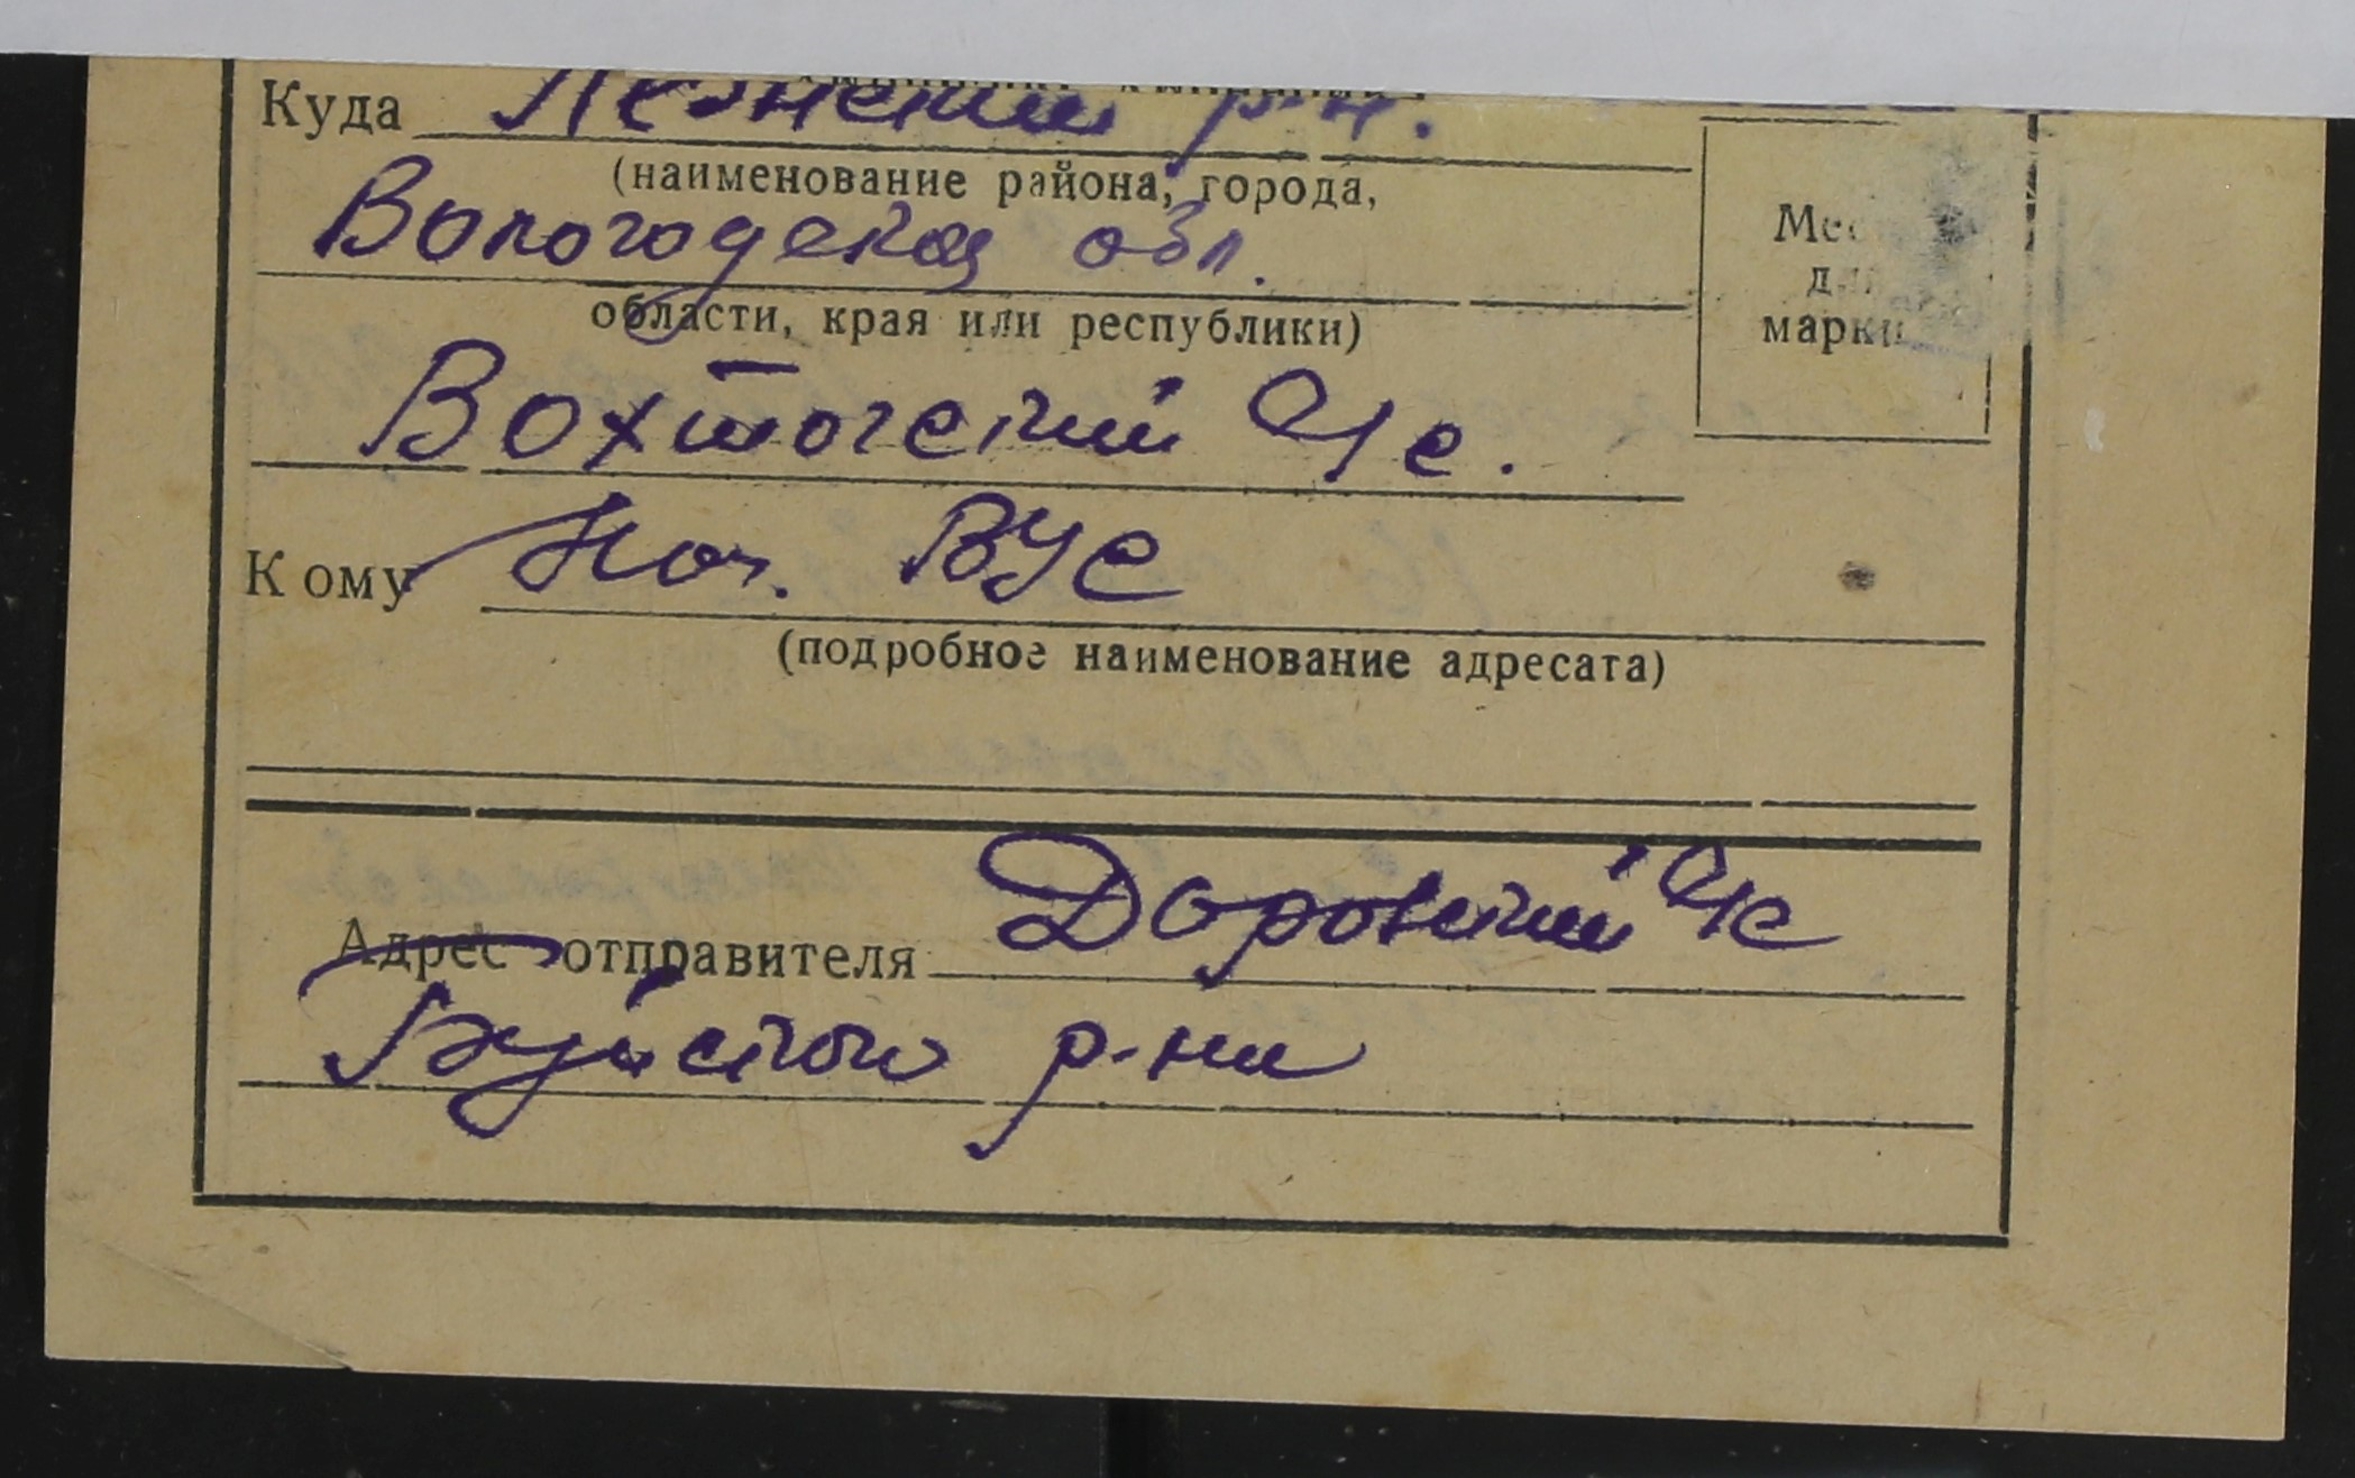 Куда Лежский р-н.
(наименование района, города,
Вологодская обл.
области, края или республики)
Вохтогский с/с.
Кому Нач. ВУС
(подробное наименование адресата)
Место
для
марки
Адрес отправителя Доровский с/с
Буйского р-на